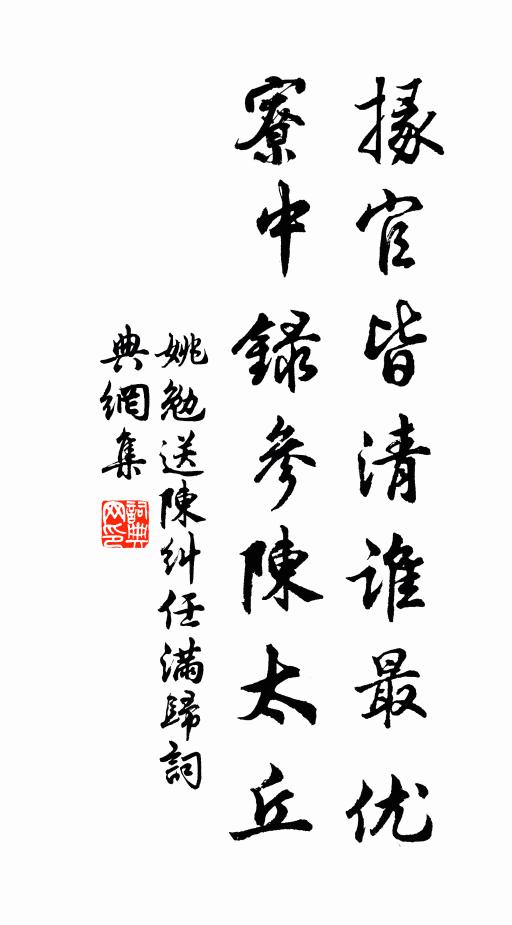 掾官皆清谁最优
寮中録參陳太丘
姚勉送陳糾任满歸詞
典網集
詞典網印